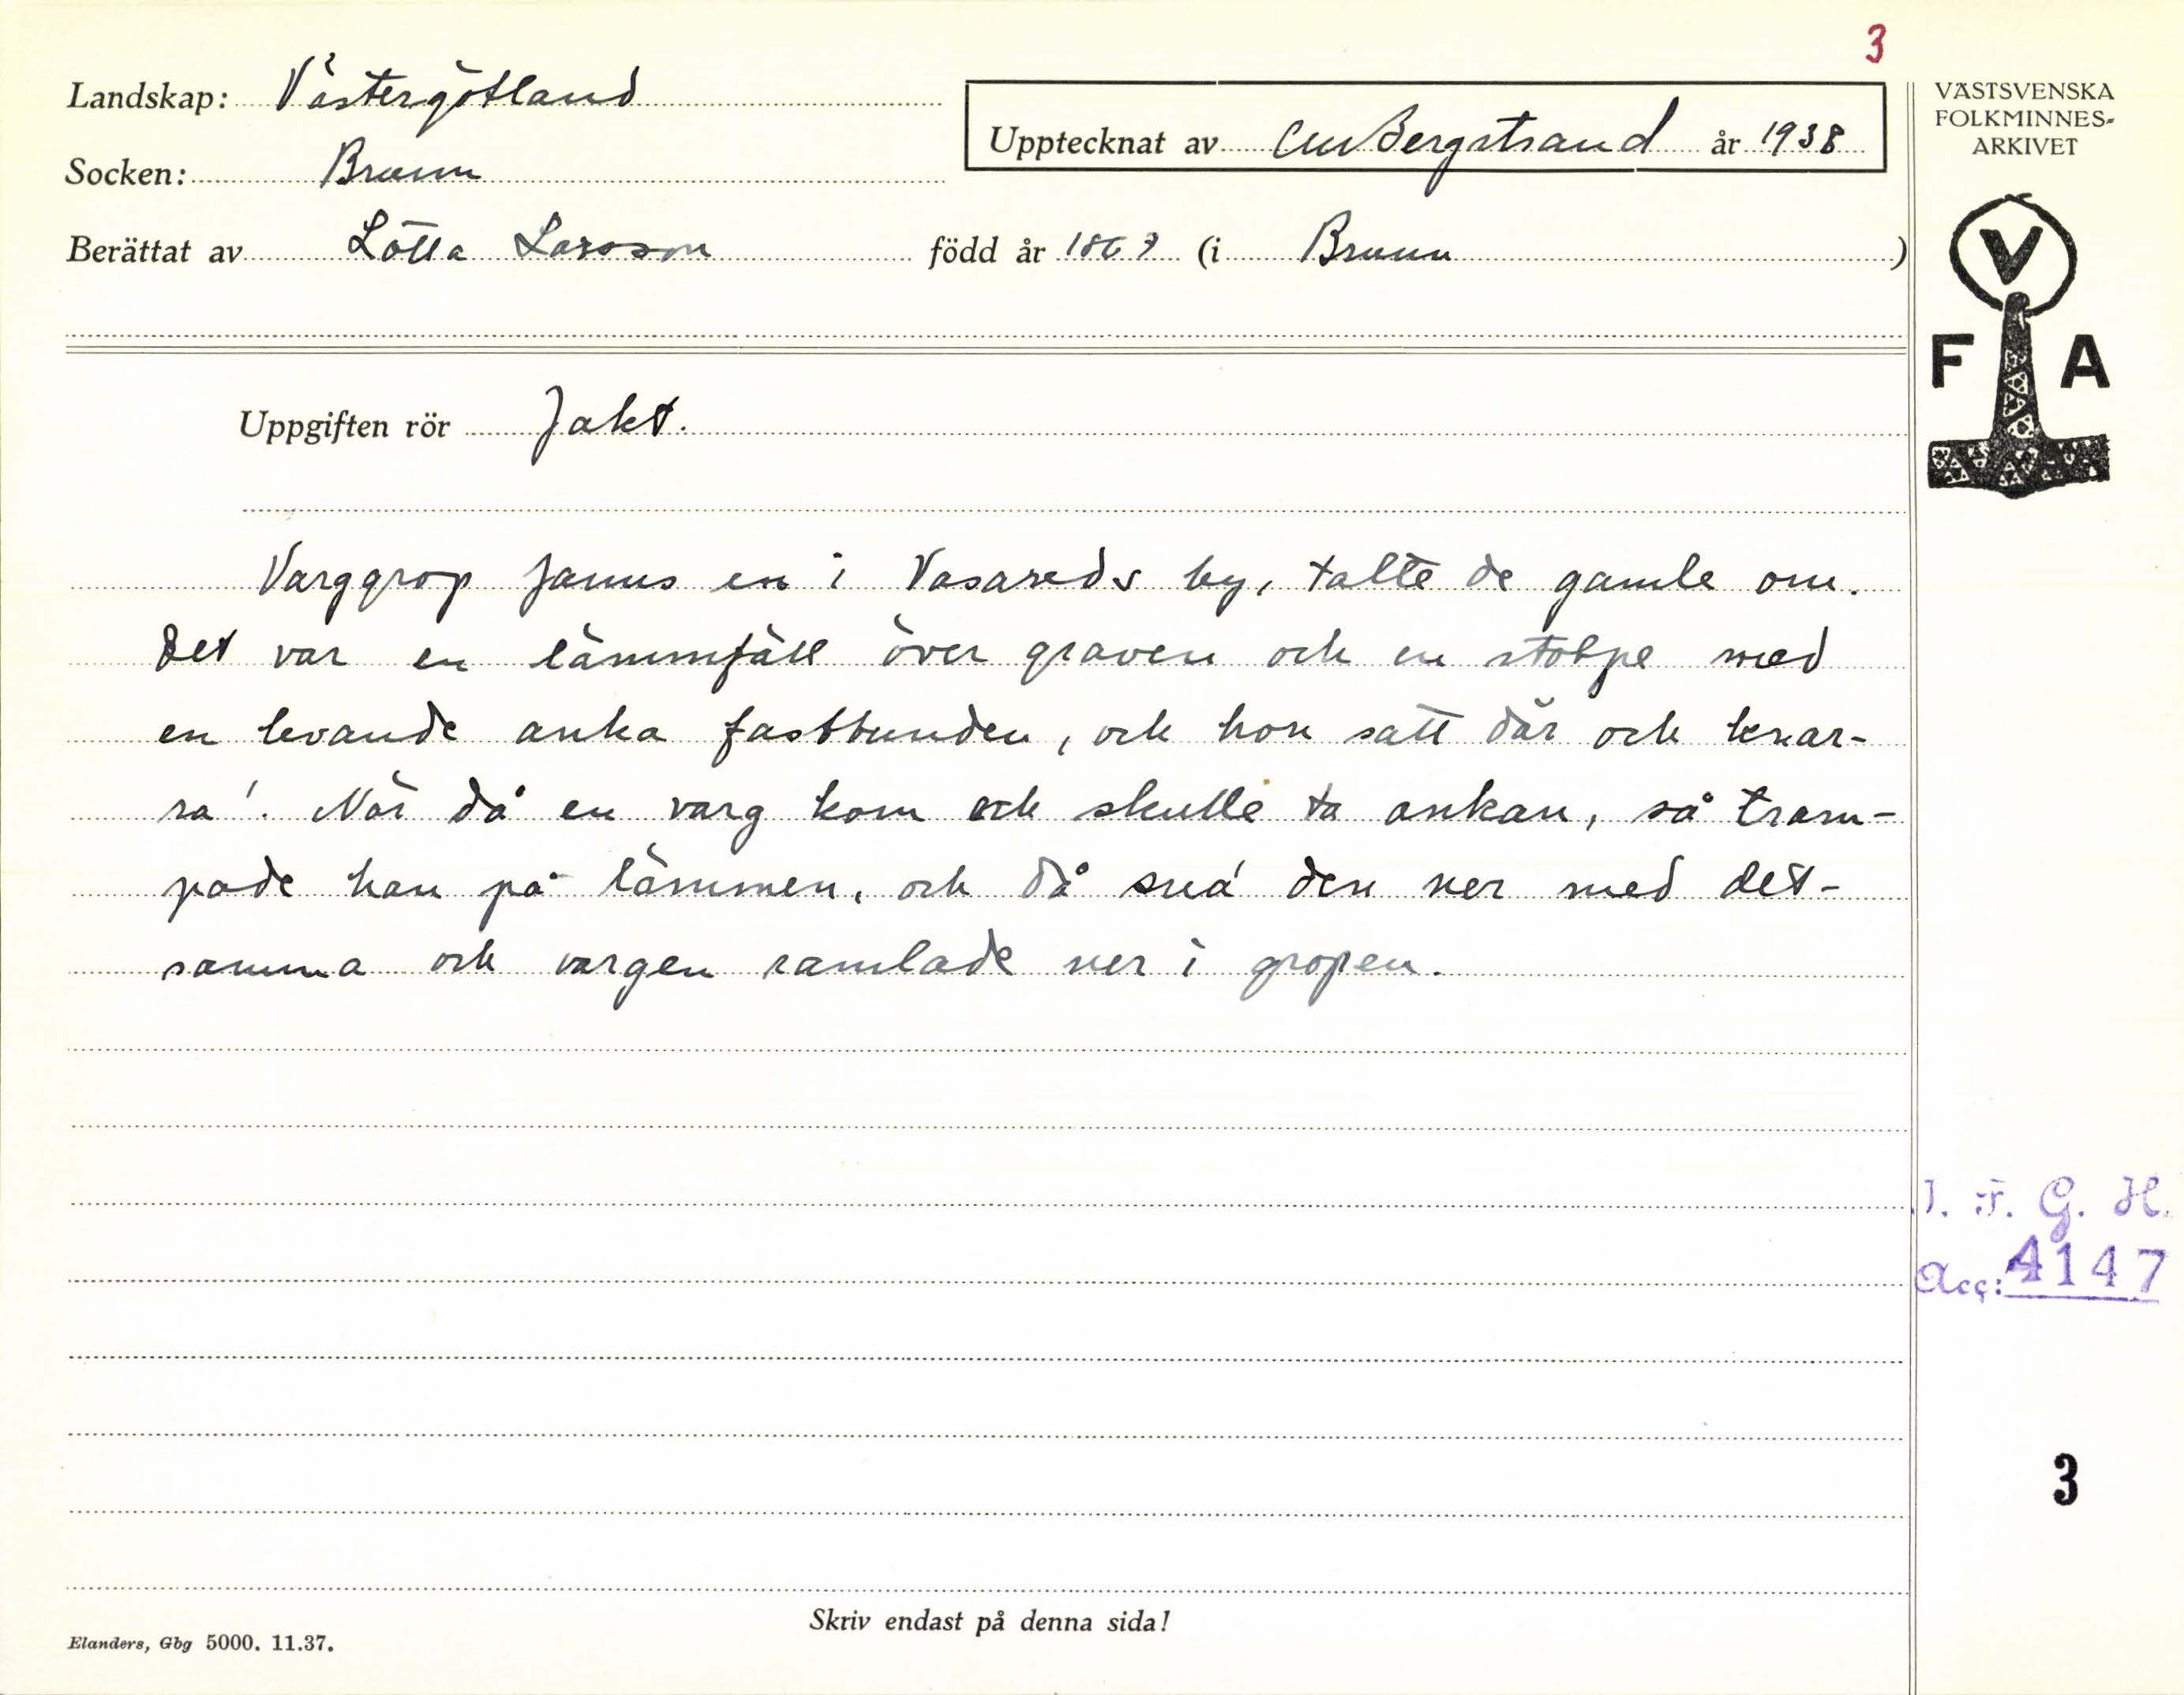 3
Landskap: Västergötland
Upptecknat av CM Bergstrand år 1938
Socken: Brunn
Berättat av Lotta Larsson född år 1867 (i Brunn)
VÄSTSVENSKA
FOLKMINNES-
ARKIVET
V
F A
Uppgiften rör Jakt.
Varggrop fanns en i Vasareds by, talte de gamle om.
Det var en lämmfäll över graven och en stolpe med
en levande anka fastbunden, och hon satt där och knar-
ra'. När då en varg kom och skulle ta ankan, så tram-
pade han på lämmen, och då sna' den ner med det-
samma och vargen ramlade ner i gropen.
I. F. G. H.
Acc: 4147
3
Skriv endast på denna sida!
Elanders, Gbg 5000. 11.37.